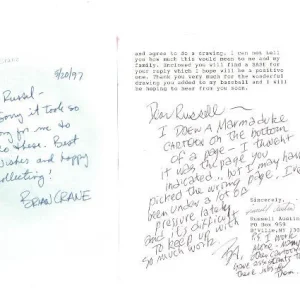 8/20/97
Russel-
Sorry it took so
long for me to
do these. Best
wishes and happy
collecting!
BRIAN CRANE
and agree to do a drawing. I can not tell
you how much this would mean to me and my
family. Enclosed you will find a SASE for
your reply which I hope will be a positive
one. Thank you very much for the wonderful
drawing you added to my baseball and I will
be hoping to hear from you soon.
Dear Russell-
I DREW A MARMADUKE
CARTOON ON THE BOTTOM
OF A PAGE - I THOUGHT
IT WAS THE PAGE YOU
INDICATED.. BUT I MAY HAVE
PICKED THE WRONG PAGE, I'VE
BEEN UNDER A LOT OF
PRESSURE LATELY
AND IT'S DIFFICULT
TO KEEP UP WITH
SO MUCH WORK.
Sincerely,
Russell Austin
PO Box 959
P.S. I WORK
ALONE - MANY
CARTOONISTS
HAVE ASSISTANTS TO